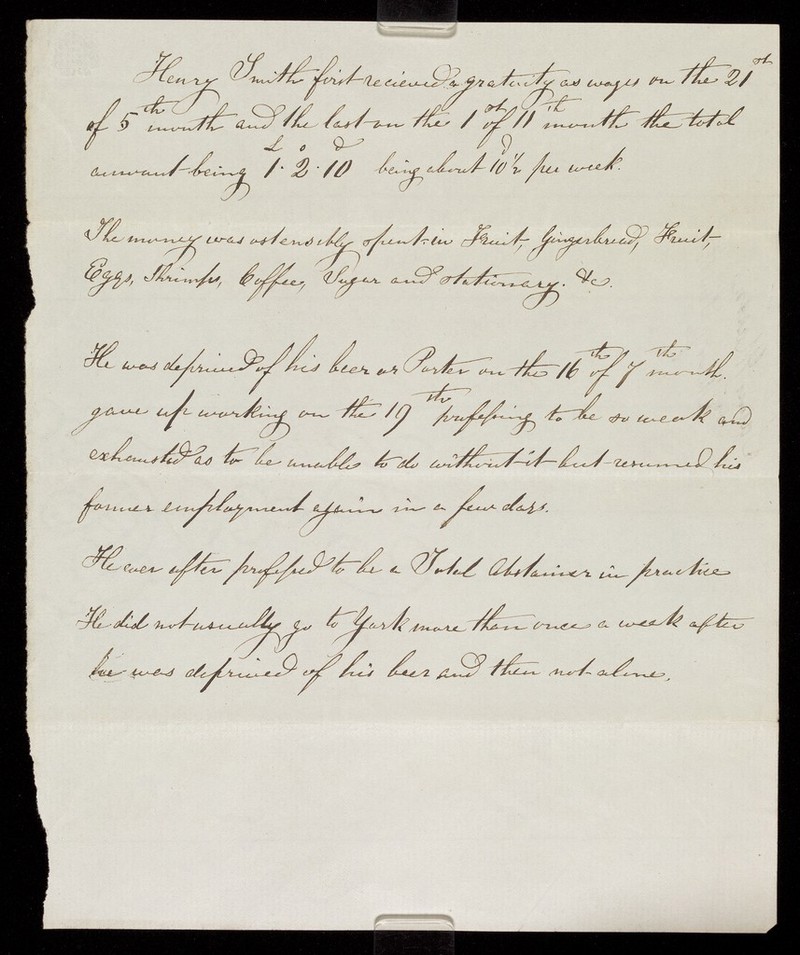 Henry Smith first recieved a gratuity as wages on the 21st
of 5th month and the last on the 1st of 11th month the total
£ s d d
amount being 1 · 2 · 10 being about 10½ per week.
The money was ostensibly spent in Fruit, Gingerbread, Fruit,
Eggs, Shrimps, Coffee, Sugar and stationary. &c.
He was deprived of his beer or Porter on the 16th of 7th month.
gave up working on the 19th professing to be so weak and
exhausted as to be unable to do without it but resumed his
former employment again in a few days.
He ever after professed to be a Total Abstainer in practice
He did not usually go to York more than once a week after
he was deprived of his beer and then not alone.